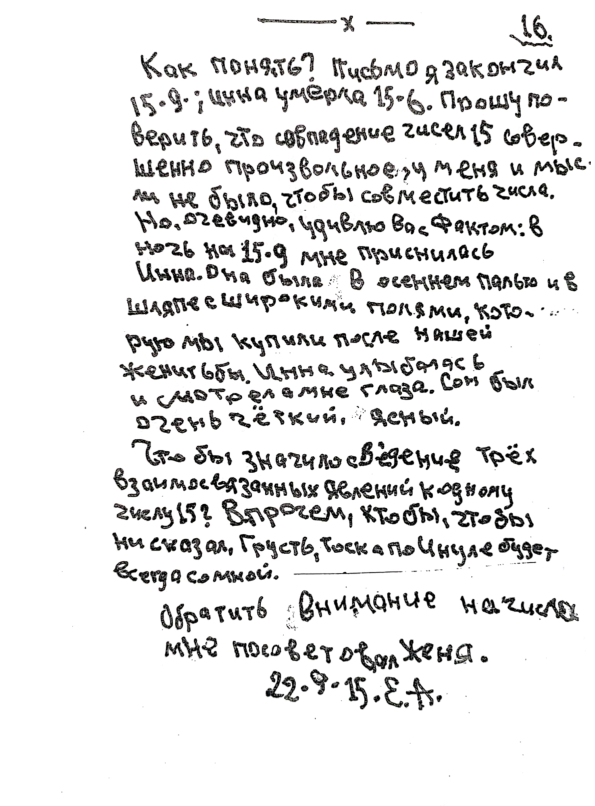 — х —
16.
Как понять? Письмо я закончил
15.9.; Инна умерла 15-6. Прошу по-
верить, что совпадение чисел 15 совер-
шенно произвольное, у меня и мыс-
ли не было, чтобы совместить числа.
Но, очевидно, удивлю вас фактом: в
ночь на 15.9 мне приснилась
Инна. Она была в осеннем пальто и в
шляпе с широкими полями, кото-
рую мы купили после нашей
женитьбы. Инна улыбалась
и смотрела мне глаза. Сон был
очень чёткий, ясный.
Что бы значило сведение трёх
взаимосвязанных явлений к одному
числу 15? Впрочем, кто бы, что бы
ни сказал, грусть, тоска по Инуле будет
всегда со мной.
Обратить внимание на числа
мне посоветовал Женя.
22.9.15. Е.А.